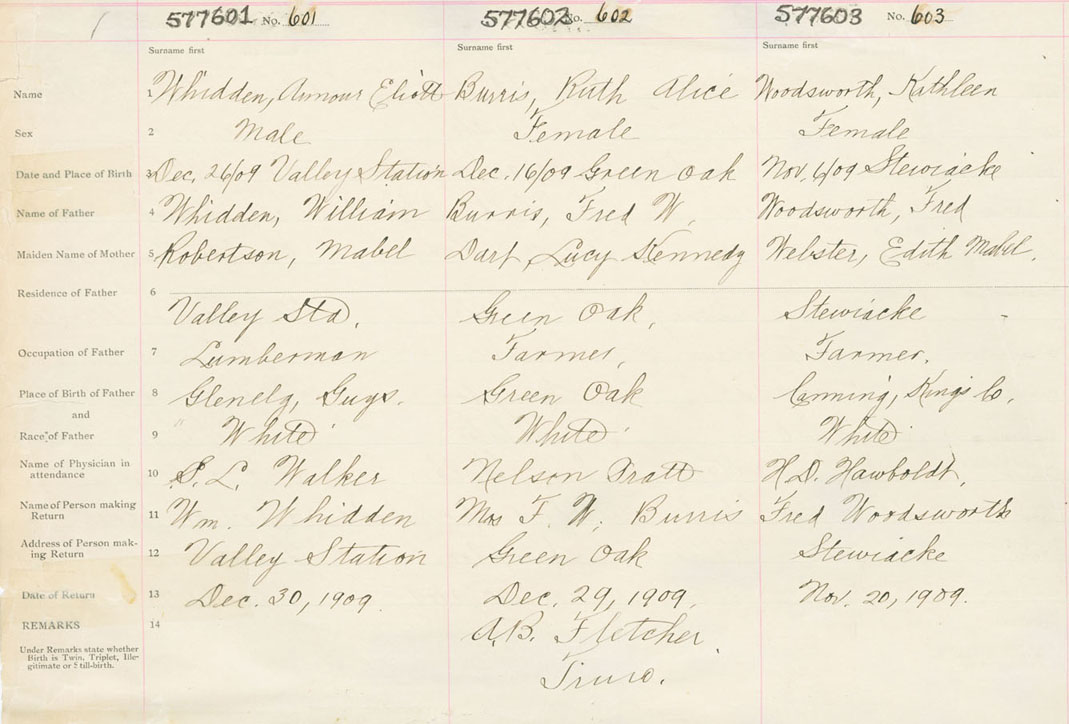 577601 No. 601 577602 No. 602 577603 No. 603
Surname first Surname first Surname first
Name 1 Whidden, Armour Eliott Burris, Ruth Alice Woodsworth, Kathleen
Sex 2 Male Female Female
Date and Place of Birth 3 Dec. 26/09 Valley Station Dec. 16/09 Green Oak Nov. 6/09 Stewiacke
Name of Father 4 Whidden, William Burris, Fred W. Woodsworth, Fred
Maiden Name of Mother 5 Robertson, Mabel Dart, Lucy Kennedy Webster, Edith Mabel.
Residence of Father 6
Valley Sta. Green Oak, Stewiacke
Occupation of Father 7 Lumberman Farmer, Farmer.
Place of Birth of Father 8 Glenelg, Guys. Green Oak Canning, Kings Co.
and
Race of Father 9 White White White
Name of Physician in
attendance 10 S. L. Walker Nelson Pratt H.D. Hawboldt,
Name of Person making
Return 11 Wm. Whidden Mrs F. W. Burris Fred Woodsworth
Address of Person mak-
ing Return 12 Valley Station Green Oak Stewiacke
Date of Return 13 Dec. 30, 1909. Dec. 29, 1909. Nov. 20, 1909.
REMARKS 14 A.B. Fletcher,
Under Remarks state whether
Birth is Twin, Triplet, Ille-
gitimate or Still-birth.
Truro.